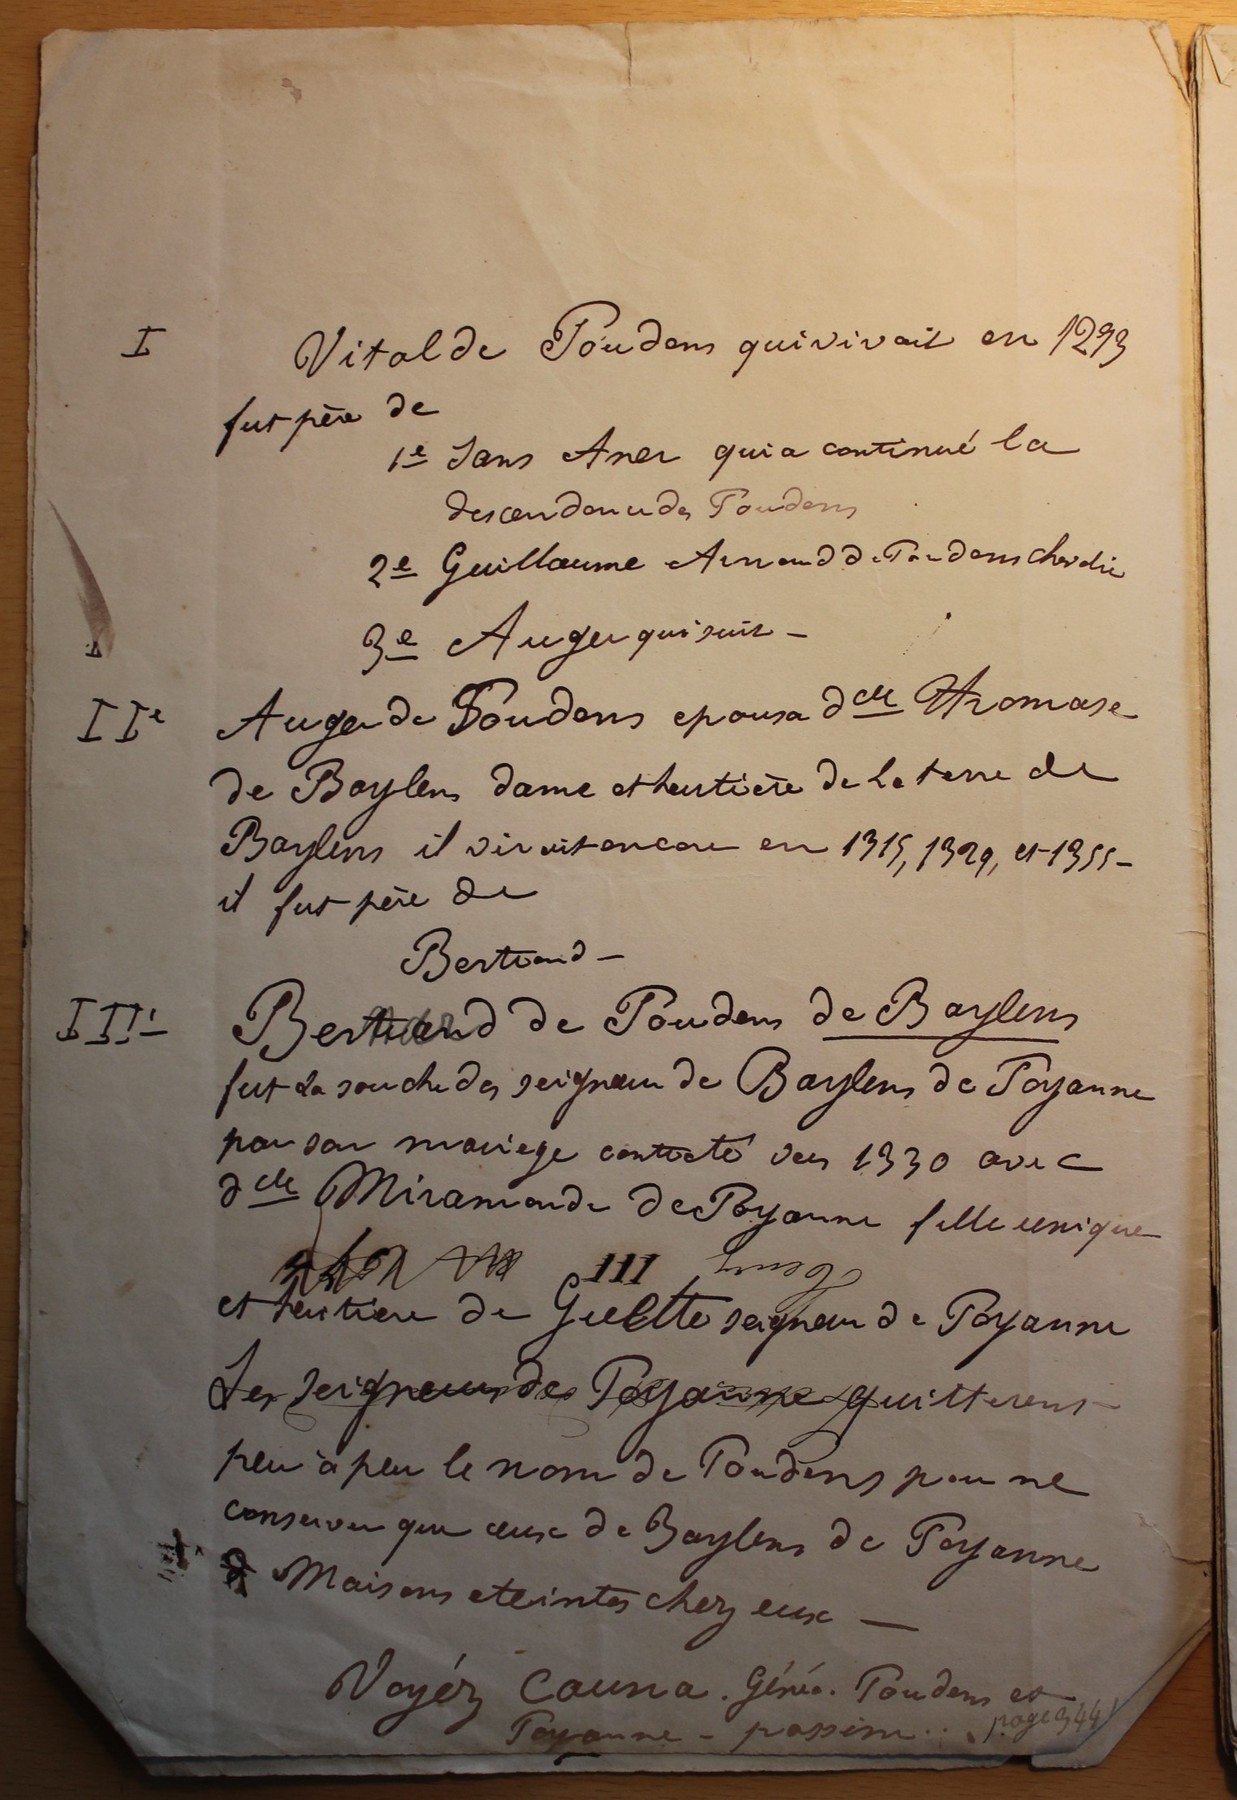 I Vital de Poudens qui vivait en 1293
fut père de
1e Sans Aner qui a continué la
descendance des Poudens
2e Guillaume Arnaud de Poudens chevalier
3e Auger qui suit –
IIe Auger de Poudens epousa delle Thomase
de Baylens dame et heritière de la terre de
Baylens il vivait encore en 1315, 1329, et 1355 –
il fut père de
Bertrand –
IIIe Bertrand de Poudens de Baylens
fut la souche des seigneurs de Baylens de Poyanne
par son mariage contracté vers 1330 avec
delle Miramonde de Poyanne fille unique
III
et heritiere de Guelto seigneur de Poyanne
Les seigneurs de Poyanne quitterent
peu à peu le nom de Poudens pour ne
conserver que ceux de Baylens de Poyanne
Maisons eteintes chez eux —
Voyéz Cauna. Généa. Poudens et
Poyanne – passim .. page 344